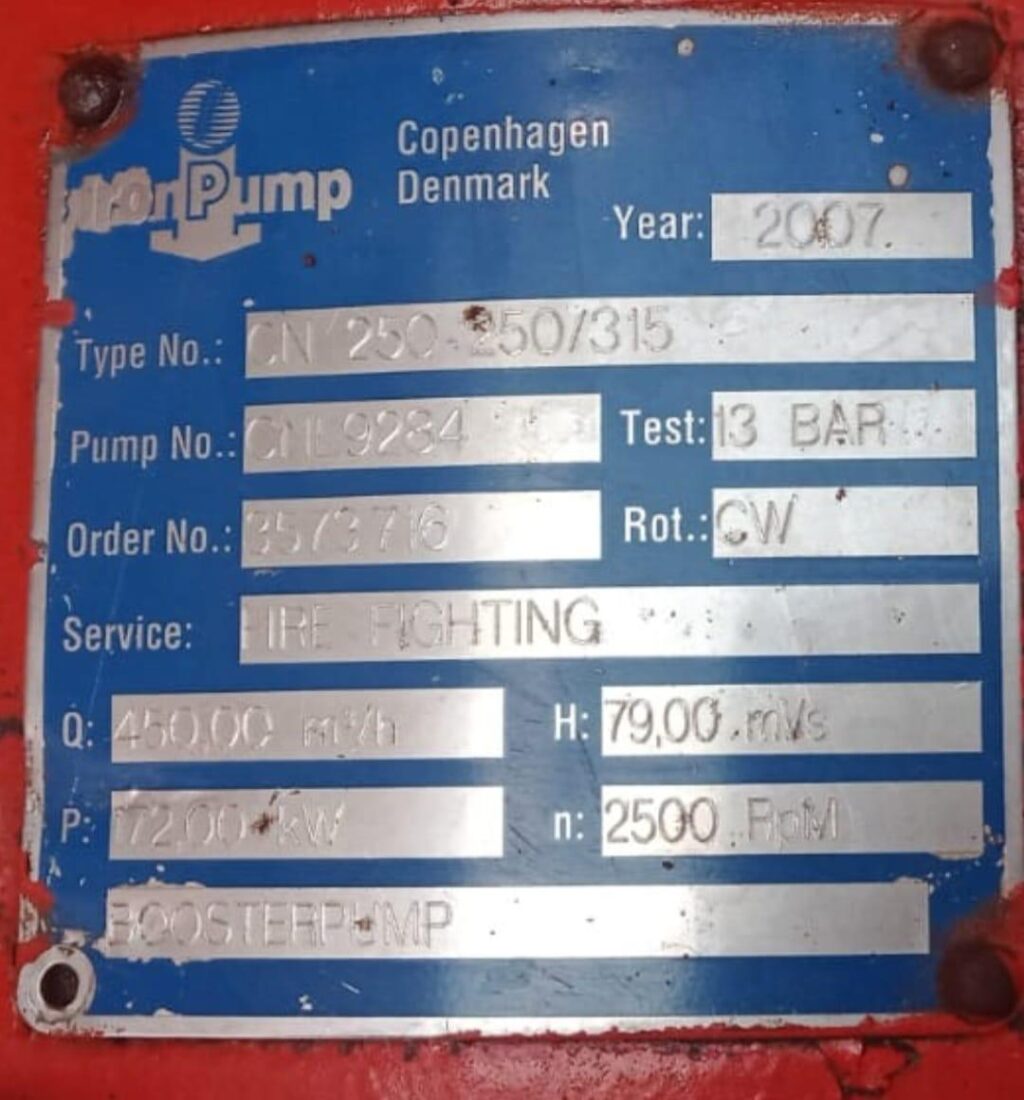 IronPump
Copenhagen
Denmark
Year: 2007
Type No.: CN 250-250/315
Pump No.: CNL9284 Test: 13 BAR
Order No.: Rot.: CW
Service: FIRE FIGHTING
Q: 450,00 m³/h H: 79,00 mVs
P: kW n: 2500 RpM
BOOSTERPUMP